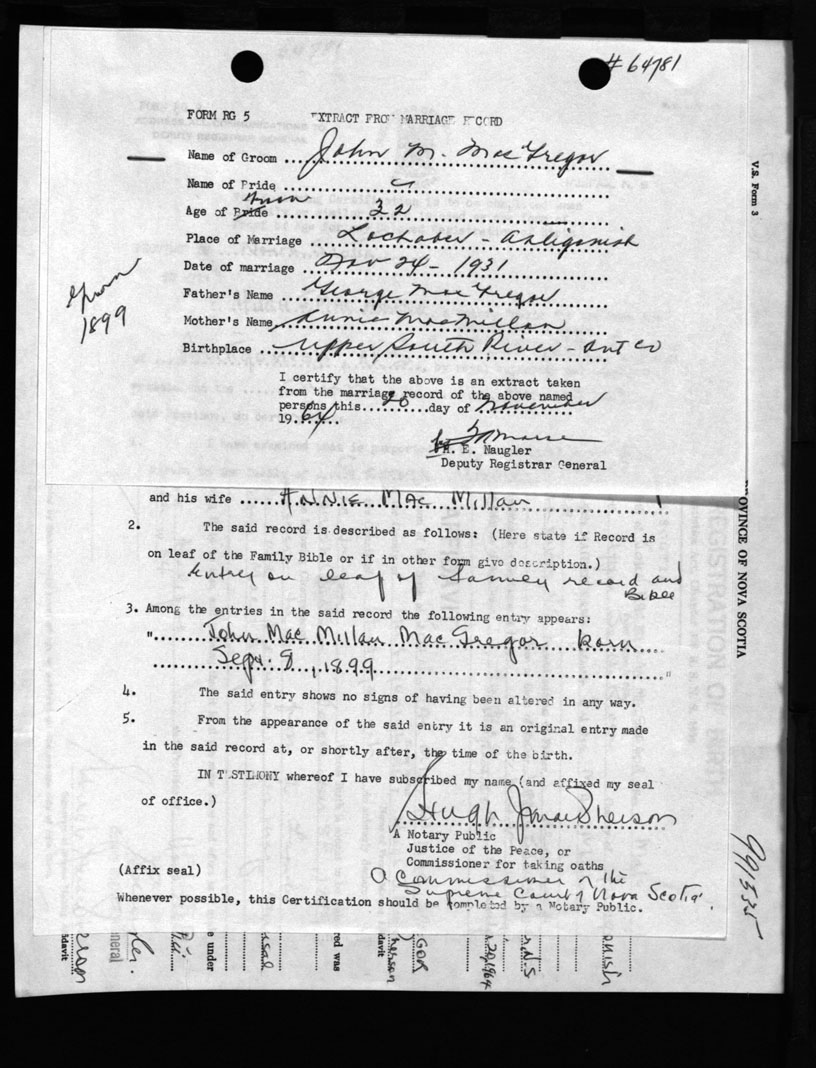 #64781
FORM RG 5 EXTRACT FROM MARRIAGE RECORD
Name of Groom .... John M. MacGregor
Name of Bride
Groom
Age of Bride 32
Place of Marriage .... Lochaber - Antigonish
Date of marriage .... Nov 24 - 1931
Father's Name .... George MacGregor
Mother's Name .... Annie MacMillan
Birthplace .... Upper South River - Ant Co
1899
I certify that the above is an extract taken
from the marriage record of the above named
persons this 20 day of November
19 64
H. E. Naugler
Deputy Registrar General
and his wife ...... ANNIE MAC Millan
2. The said record is described as follows: (Here state if Record is
on leaf of the Family Bible or if in other form give description.)
Entry on leaf of family record and
Bible
3. Among the entries in the said record the following entry appears:
"........ John Mac Millan Mac Gregor born ....
........ Sept. 9, 1899 ........"
4. The said entry shows no signs of having been altered in any way.
5. From the appearance of the said entry it is an original entry made
in the said record at, or shortly after, the time of the birth.
IN TESTIMONY whereof I have subscribed my name (and affixed my seal
of office.)
Hugh J MacPherson
A Notary Public
Justice of the Peace, or
Commissioner for taking oaths
(Affix seal)
A Commissioner of the
Supreme Court of Nova Scotia
Whenever possible, this Certification should be completed by a Notary Public.
V.S. Form 3
OVINCE OF NOVA SCOTIA
REGISTRATION OF BIRTH
991535
erson
davit
eneral
e under
red was
davit
herson
GOR
20, 1964
N.S
onish